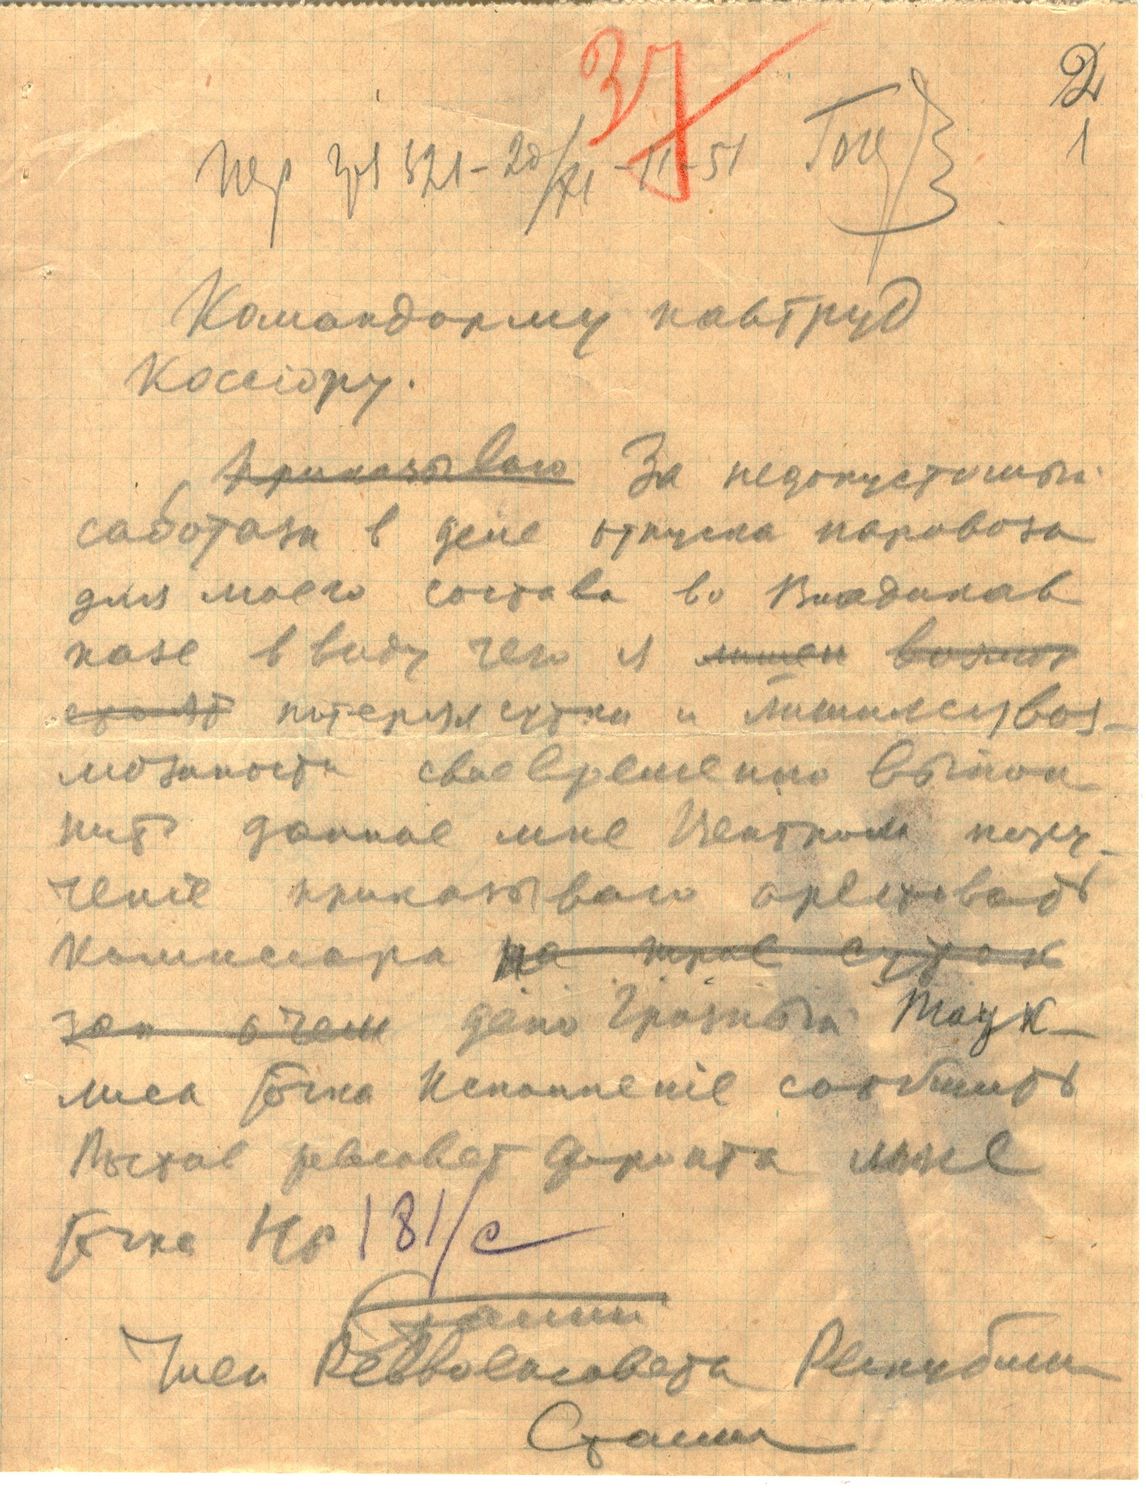 37
2
1
пер 321-20/XI-11-51
Командарму кавтруд
Коссіору.
Приказываю За недопустимый
саботаж в деле отпуска паровоза
для моего состава во Владикав
казе в виду чего я лишен возмож
потерял сутки и лишился воз-
можности своевременно выпол
нить данное мне Центром пору-
ченіе приказываю арестовать
Комиссара на трое суток
депо Грозный
точка Исполненіе сообщить
Ростов ревсовет фронта мне
точка Нр 181/с
Сталин
Член Реввоенсовета Республики
Сталин